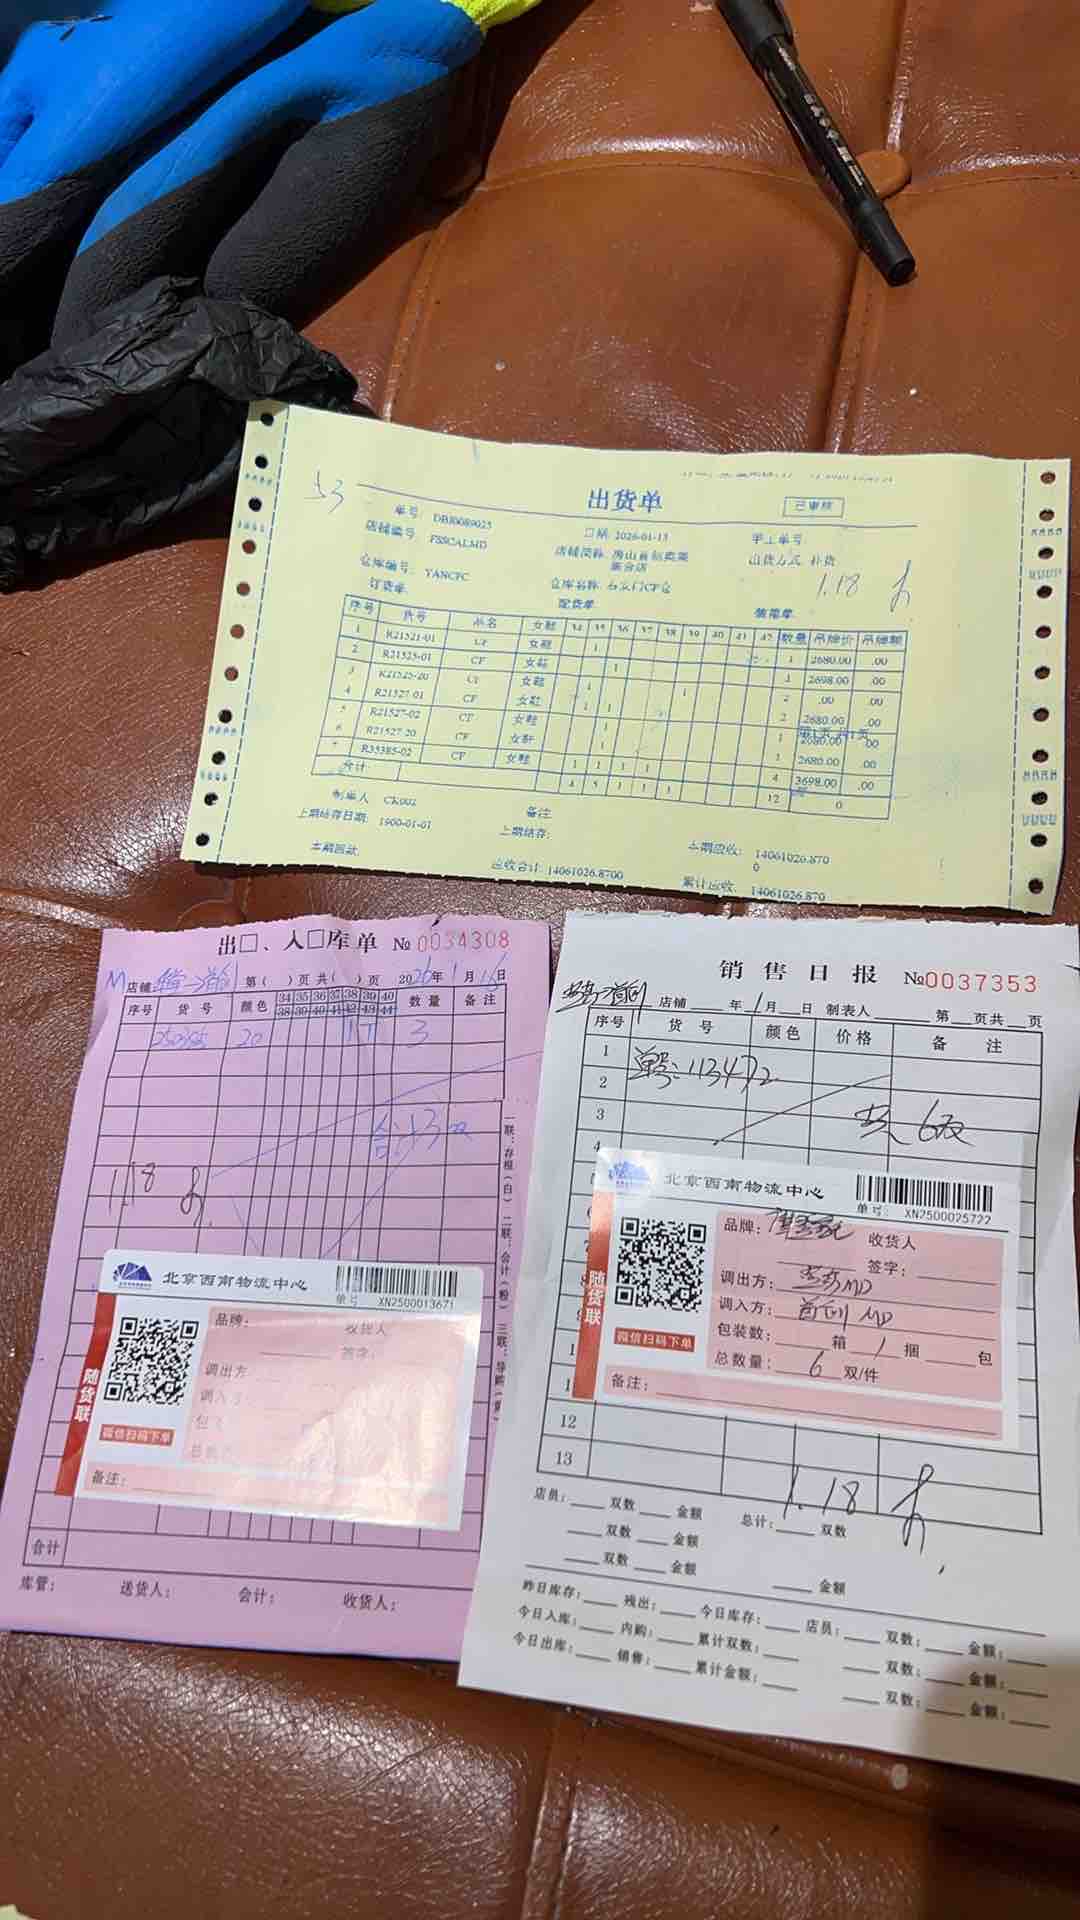 53
出货单
已审核
单号: DBJ0089025
日期: 2026-01-13
手工单号:
店铺编号: FSSCALMD
店铺简称: 房山首创奥莱
出货方式: 补货
仓库编号: YANCFC
1.18
订货单:
配货单:
装箱单:
序号 货号 品名 女鞋 34 35 36 37 38 39 40 41 42 数量 吊牌价 吊牌额
1 R21521-01 CF 女鞋 1 1 2680.00 .00
2 R21525-01 CF 女鞋 1 1 2698.00 .00
3 R21525-20 CF 女鞋 1 1 2 .00 .00
4 R21527-01 CF 女鞋 1 1 2 2680.00 .00
5 R21527-02 CF 女鞋 1 1 2680.00 .00
6 R21527-20 CF 女鞋 1 1 2680.00 .00
7 R35385-02 CF 女鞋 1 1 1 1 4 3698.00 .00
合计: 4 5 1 1 1 12 0
第1页 共1页
制单人: CK002
备注:
上期结存日期: 1900-01-01
上期结存:
本期应收: 14061026.870
0
本期回款:
应收合计: 14061026.8700
累计应收: 14061026.870
出□、入□库单 № 0034308
店铺 第( )页 共( )页 2026年1月16日
序号 货号 颜色 34 35 36 37 38 39 40 数量 备注
38 39 40 41 42 43 44
20 3
合计3双
1.18
一联:存根(白) 二联:会计(粉) 三联:导购(黄)
北京西南物流中心
单号: XN2500013671
随货联
微信扫码下单
品牌:
收货人
签字:
调出方
调入方:
备注:
合计
库管: 送货人: 会计: 收货人:
销售日报 №0037353
店铺 年 1月 日 制表人 第 页共 页
序号 货号 颜色 价格 备注
1
单号:113472
2
3
共 6双
4
北京西南物流中心
单号: XN2500025722
随货联
微信扫码下单
品牌:
收货人
签字:
调出方: MD
调入方: 首创 MD
包装数: 箱 1 捆 包
总数量: 6 双/件
备注:
12
13
1.18
店员: 双数 金额 总计: 双数
双数 金额
双数 金额 金额
昨日库存: 残出: 今日库存: 店员: 双数: 金额:
今日入库: 内购: 累计双数: 双数: 金额:
今日出库: 销售: 累计金额: 双数: 金额: